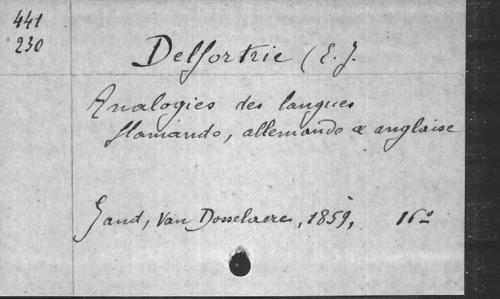 441
230
Delfortrie (E. J.
Analogies des langues
flamande, allemande & anglaise
Gand, Van Dosselaere, 1859, 16°